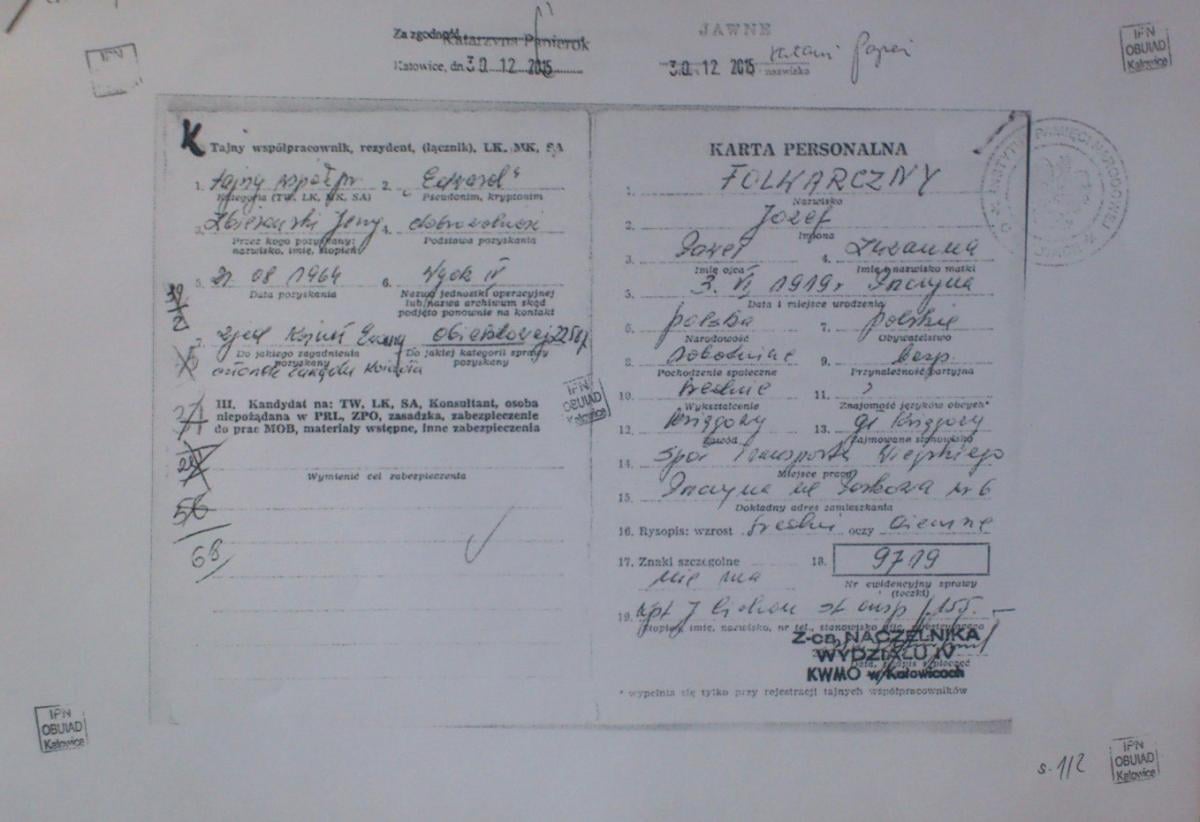 Za zgodność
Katarzyna Panierok
Katowice, dn. 30. 12. 2015
JAWNE
30. 12. 2015
nazwisko
IPN
IPN
OBUIAD
Katowice
K
Tajny współpracownik, rezydent, (łącznik), LK, MK, SA
1. tajny współpr 2. „Edward"
Kategoria (TW, LK, MK, SA) Pseudonim, kryptonim
3. Jerzy 4. dobrowolność
Przez kogo pozyskany: Podstawa pozyskania
nazwisko, imię, stopień
5. 21 08 1964 6. Wydz IV
Data pozyskania Nazwa jednostki operacyjnej
lub nazwa archiwum skąd
podjęto ponownie na kontakt
7. Obiektowej
Do jakiego zagadnienia Do jakiej kategorii sprawy
pozyskany pozyskany
członek zarządu Kościoła
III. Kandydat na: TW, LK, SA, Konsultant, osoba
niepożądana w PRL, ZPO, zasadzka, zabezpieczenie
do prac MOB, materiały wstępne, inne zabezpieczenia
Wymienić cel zabezpieczenia
56
68
IPN
OBUIAD
Katowice
KARTA PERSONALNA
1. FOLWARCZNY
Nazwisko
2. Józef
Imiona
3. Paweł 4. Zuzanna
Imię ojca Imię i nazwisko matki
5. 3. VI 1919 r
Data i miejsce urodzenia
6. polska 7. polskie
Narodowość Obywatelstwo
8. robotnicze 9. bezp.
Pochodzenie społeczne Przynależność partyjna
10. średnie 11. ?
Wykształcenie Znajomość języków obcych*
12. księgowy 13. gł księgowy
Zawód Zajmowane stanowisko
14. Spół Transportu Wiejskiego
Miejsce pracy
15. nr 6
Dokładny adres zamieszkania
16. Rysopis: wzrost średni oczy ciemne
17. Znaki szczególne 18. 9719
nie ma
Nr ewidencyjny sprawy
(teczki)
19. kpt J Cichoń
Stopień, imię, nazwisko, nr tel., stanowisko
Z-ca NACZELNIKA
WYDZIAŁU IV
KWMO w Katowicach
* wypełnia się tylko przy rejestracji tajnych współpracowników
INSTYTUT PAMIĘCI NARODOWEJ
IPN
OBUIAD
Katowice
s. 1/2
IPN
OBUIAD
Katowice